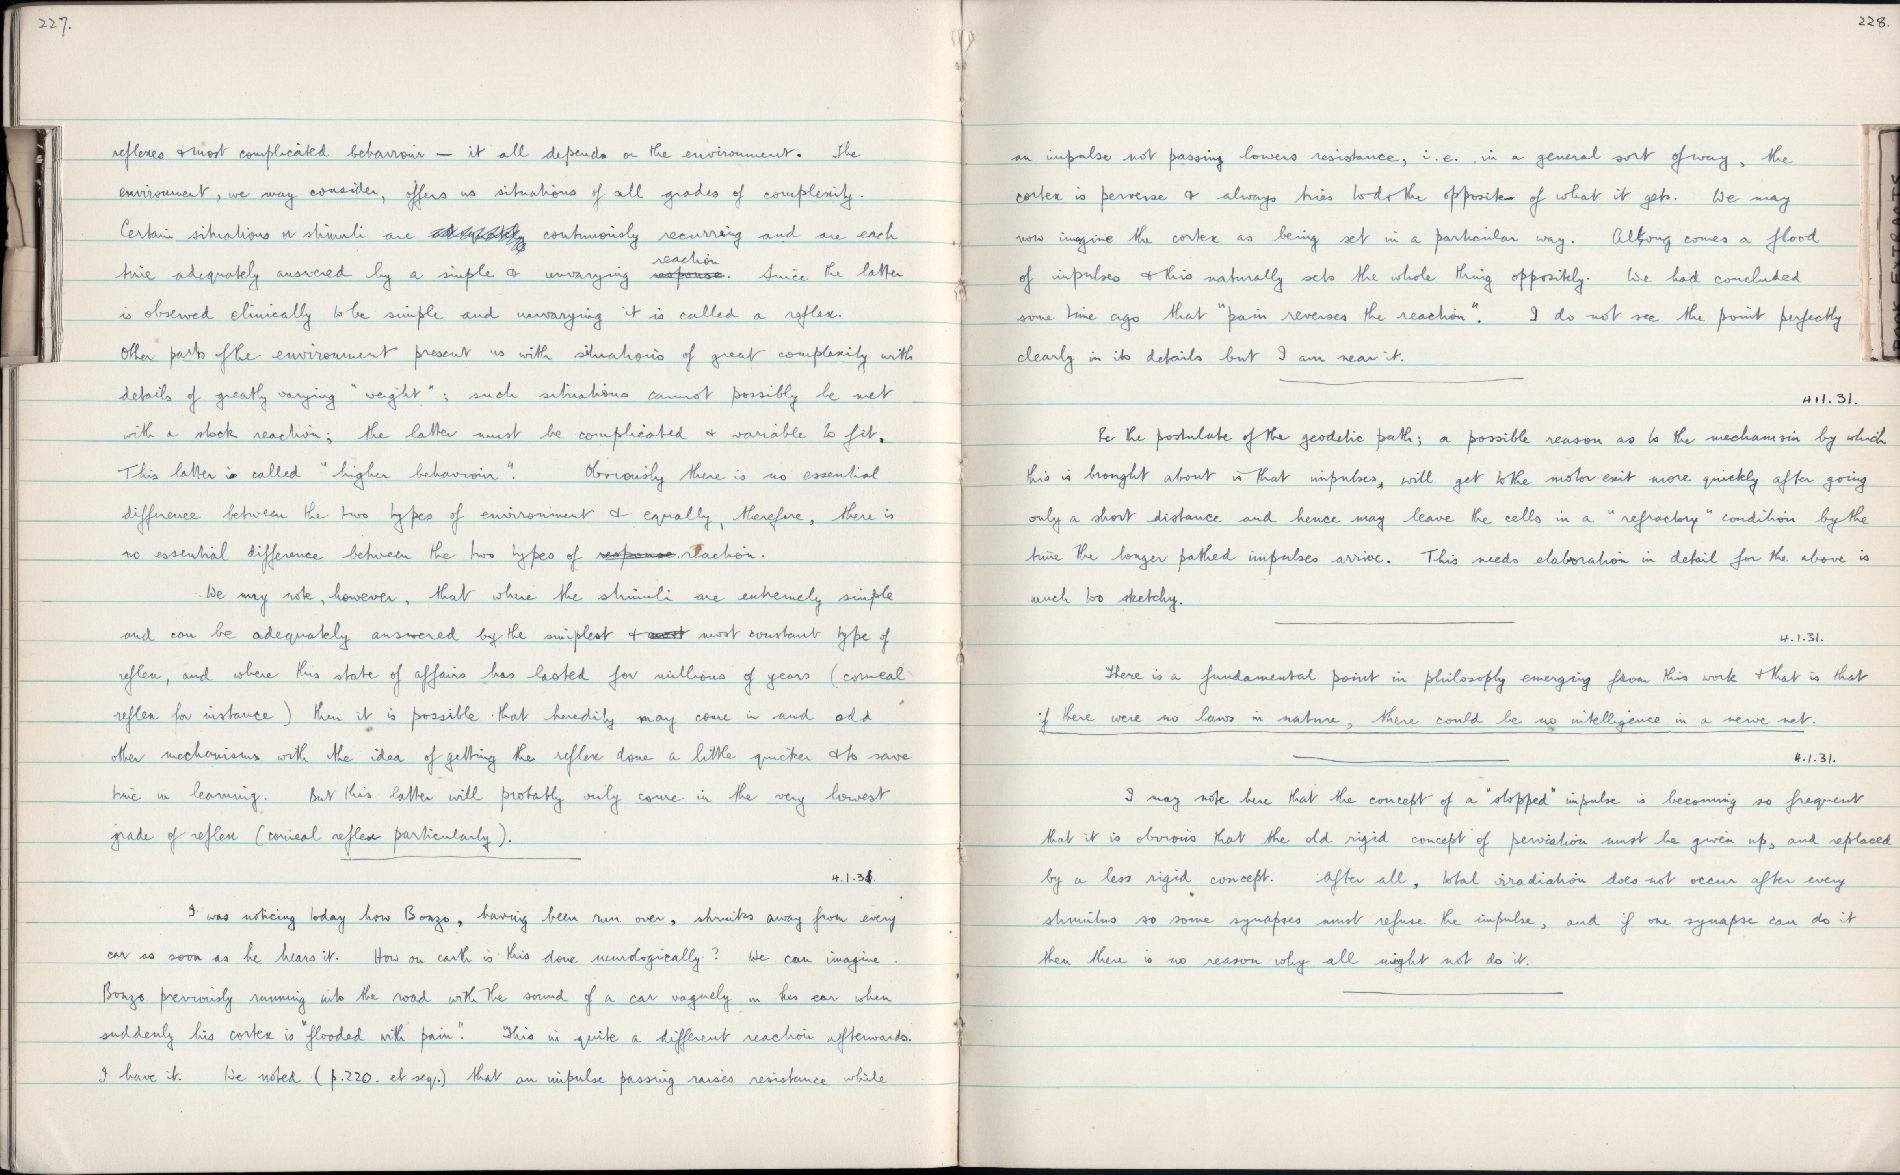 227.
reflexes & most complicated behaviour — it all depends on the environment. The
environment, we may consider, offers us situations of all grades of complexity.
Certain situations or stimuli are continuously recurring and are each
time adequately answered by a simple & unvarying response reaction. Since the latter
is observed clinically to be simple and unvarying it is called a reflex.
Other parts of the environment present us with situations of great complexity with
details of greatly varying "weight"; such situations cannot possibly be met
with a stock reaction; the latter must be complicated & variable to fit.
This latter is called "higher behaviour". Obviously there is no essential
difference between the two types of environment & equally, therefore, there is
no essential difference between the two types of response reaction.
We may note, however, that where the stimuli are extremely simple
and can be adequately answered by the simplest & most most constant type of
reflex, and where this state of affairs has lasted for millions of years (corneal
reflex for instance) then it is possible that heredity may come in and add
other mechanisms with the idea of getting the reflex done a little quicker & to save
time in learning. But this latter will probably only come in the very lowest
grade of reflex (corneal reflex particularly).
4.1.31.
I was noticing today how Bonzo, having been run over, shrinks away from every
car as soon as he hears it. How on earth is this done neurologically? We can imagine
Bonzo previously running into the road with the sound of a car vaguely in his ear when
suddenly his cortex is "flooded with pain". This is quite a different reaction afterwards.
I have it. We noted (p.220. et seq.) that an impulse passing raises resistance while
228.
an impulse not passing lowers resistance, i.e. in a general sort of way, the
cortex is perverse & always tries to do the opposite of what it gets. We may
now imagine the cortex as being set in a particular way. Along comes a flood
of impulses & this naturally sets the whole thing oppositely. We had concluded
some time ago that "pain reverses the reaction". I do not see the point perfectly
clearly in its details but I am near it.
4.1.31.
Re the postulate of the geodetic path; a possible reason as to the mechanism by which
this is brought about is that impulses, will get to the motor exit more quickly after going
only a short distance and hence may leave the cells in a "refractory" condition by the
time the longer pathed impulses arrive. This needs elaboration in detail for the above is
much too sketchy.
4.1.31.
There is a fundamental point in philosophy emerging from this work & that is that
if there were no laws in nature, there could be no intelligence in a nerve net.
4.1.31.
I may note here that the concept of a "stopped" impulse is becoming so frequent
that it is obvious that the old rigid concept of perviation must be given up, and replaced
by a less rigid concept. After all, total irradiation does not occur after every
stimulus so some synapses must refuse the impulse, and if one synapse can do it
then there is no reason why all might not do it.